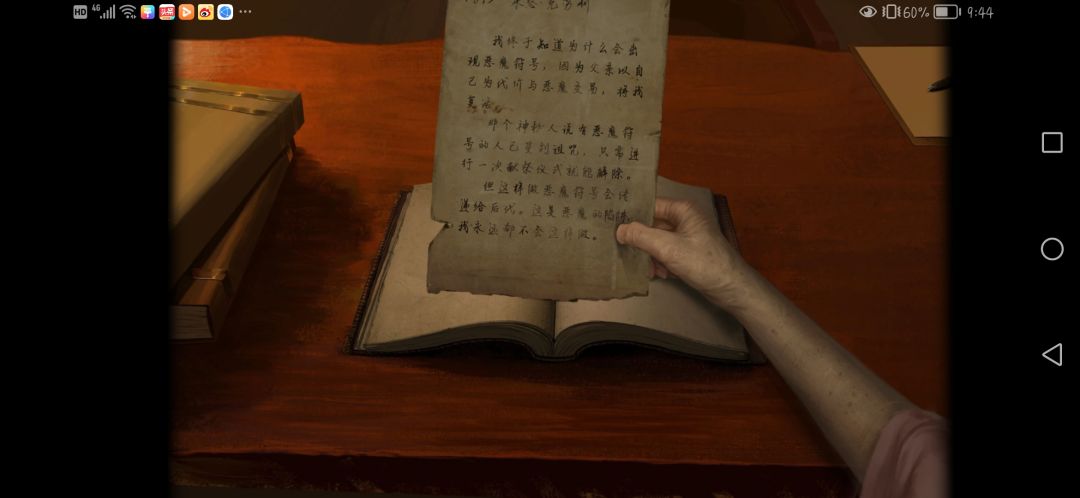 HD 4G 60% 9:44
我终于知道为什么会出
现恶魔符号，因为父亲以自
己为代价与恶魔交易，将我
复活。
那个神秘人说有恶魔符
号的人已受到诅咒，只需进
行一次献祭仪式就能解除。
但这样做恶魔符号会传
递给后代。这是恶魔的陷阱，
我永远都不会这样做。